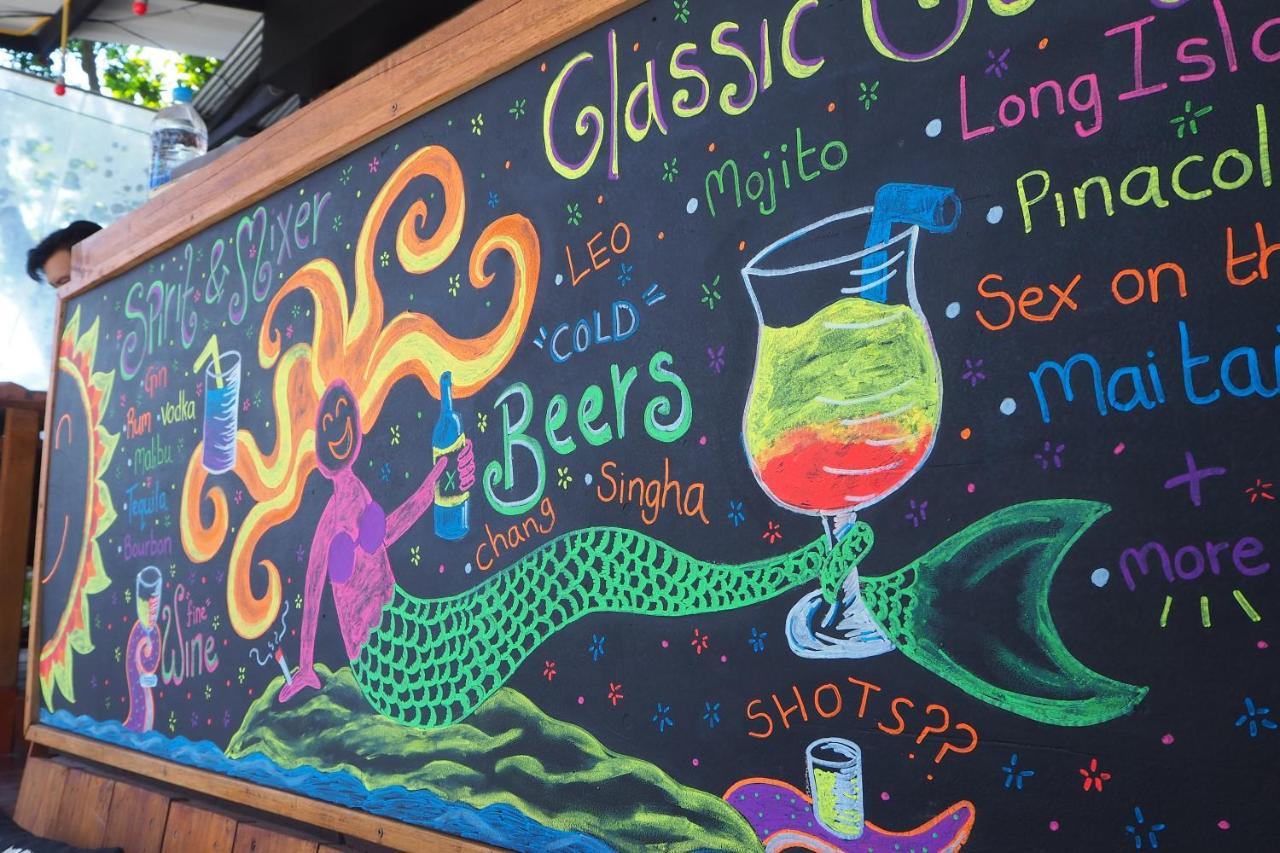 Classic
Mojito
Long Isla
Pinacol
Sex on th
Maitai
+
More
Spirit & Mixer
Gin
Rum
Vodka
Malibu
Tequila
Bourbon
fine
Wine
LEO
"COLD"
Beers
Singha
chang
X
SHOTS??